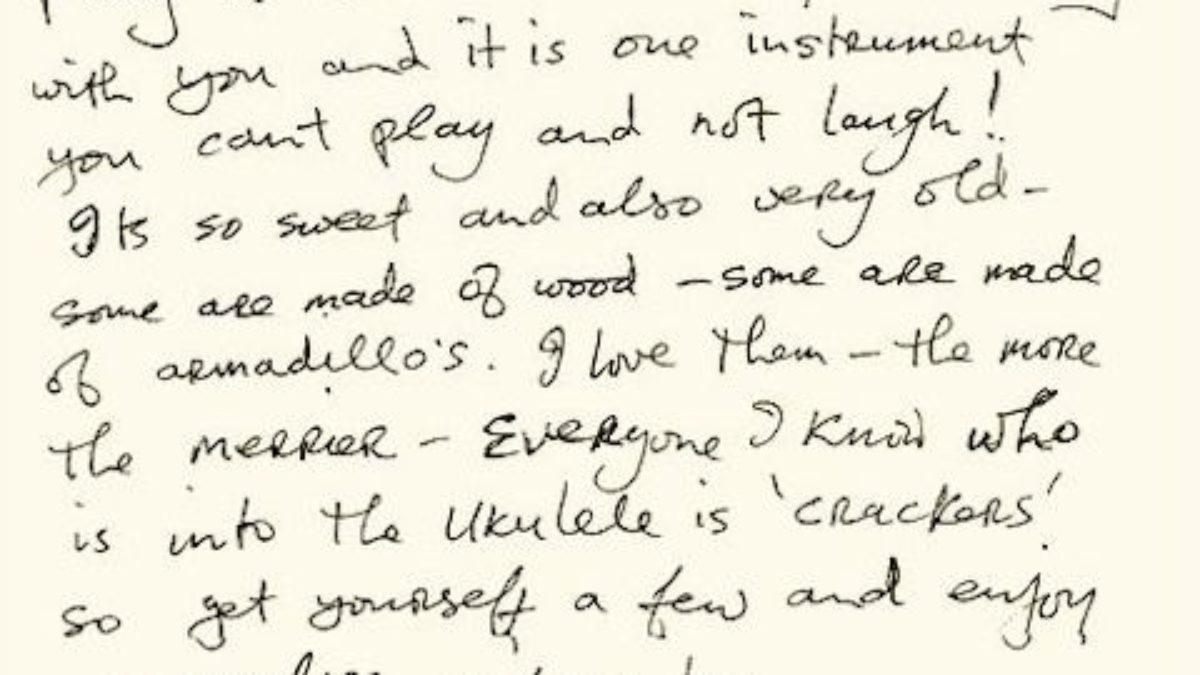 with you and it is one instrument
you can't play and not laugh!
Its so sweet and also very old -
some are made of wood - some are made
of armadillo's. I love them - the more
the merrier - Everyone I know who
is into the Ukulele is 'crackers'
so get yourself a few and enjoy